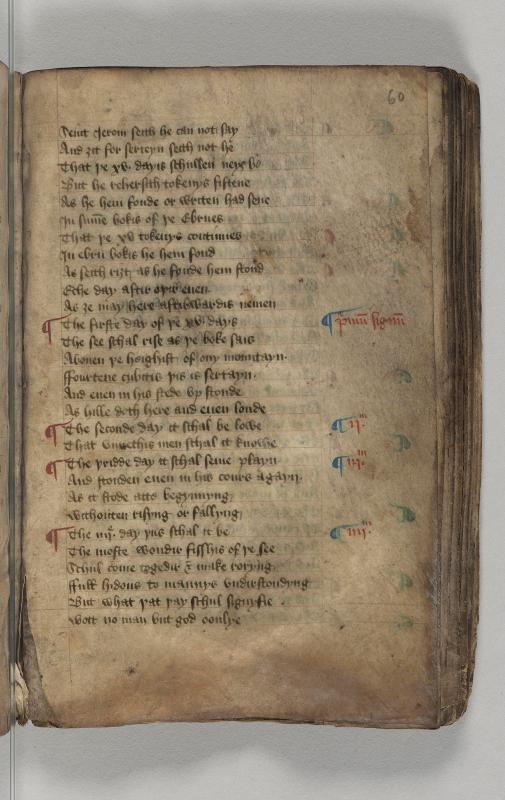 60
Seint Jerom seith he can not say
And ȝit for serteyn seith not he
That þe xv. dayis schullen
But he rehersith tokenys fiftene
As he hem fonde or writen had sene
In sum̄e bokis of þe Ebrues
That þe xv tokenys contunues
In ebru bokis he hem fond
As seith riȝt as he fonde hem stond
Eche day aftir oþir euen
As ȝe may here aftirwardis neuen
¶ The firste day of þe xv. days ¶ p̄mū sign̄
The see schal rise as þe boke sais
Abouen þe heighist of ony mountayn.
ffourtene cubitis þis is sertayn.
And euen in his stede vp stonde
As hille doth here and euen londe
¶ The seconde day it schal be lowe ¶ ij.m
That vnnethis men schal it knowe
¶ The þridde day it schal seme playn ¶ iij.m
And stonden euen in his cours agayn.
As it stode atte begynnyng
Withouten risyng or fallyng
¶ The iiij. day þus schal it be ¶ iiij.m
The moste wondir fisshis of þe see
Schul come togedir & make roryng
ffull hidous to mannys vndirstondyng
But what þat þay schul signyfie
Wott no man but god oonlye